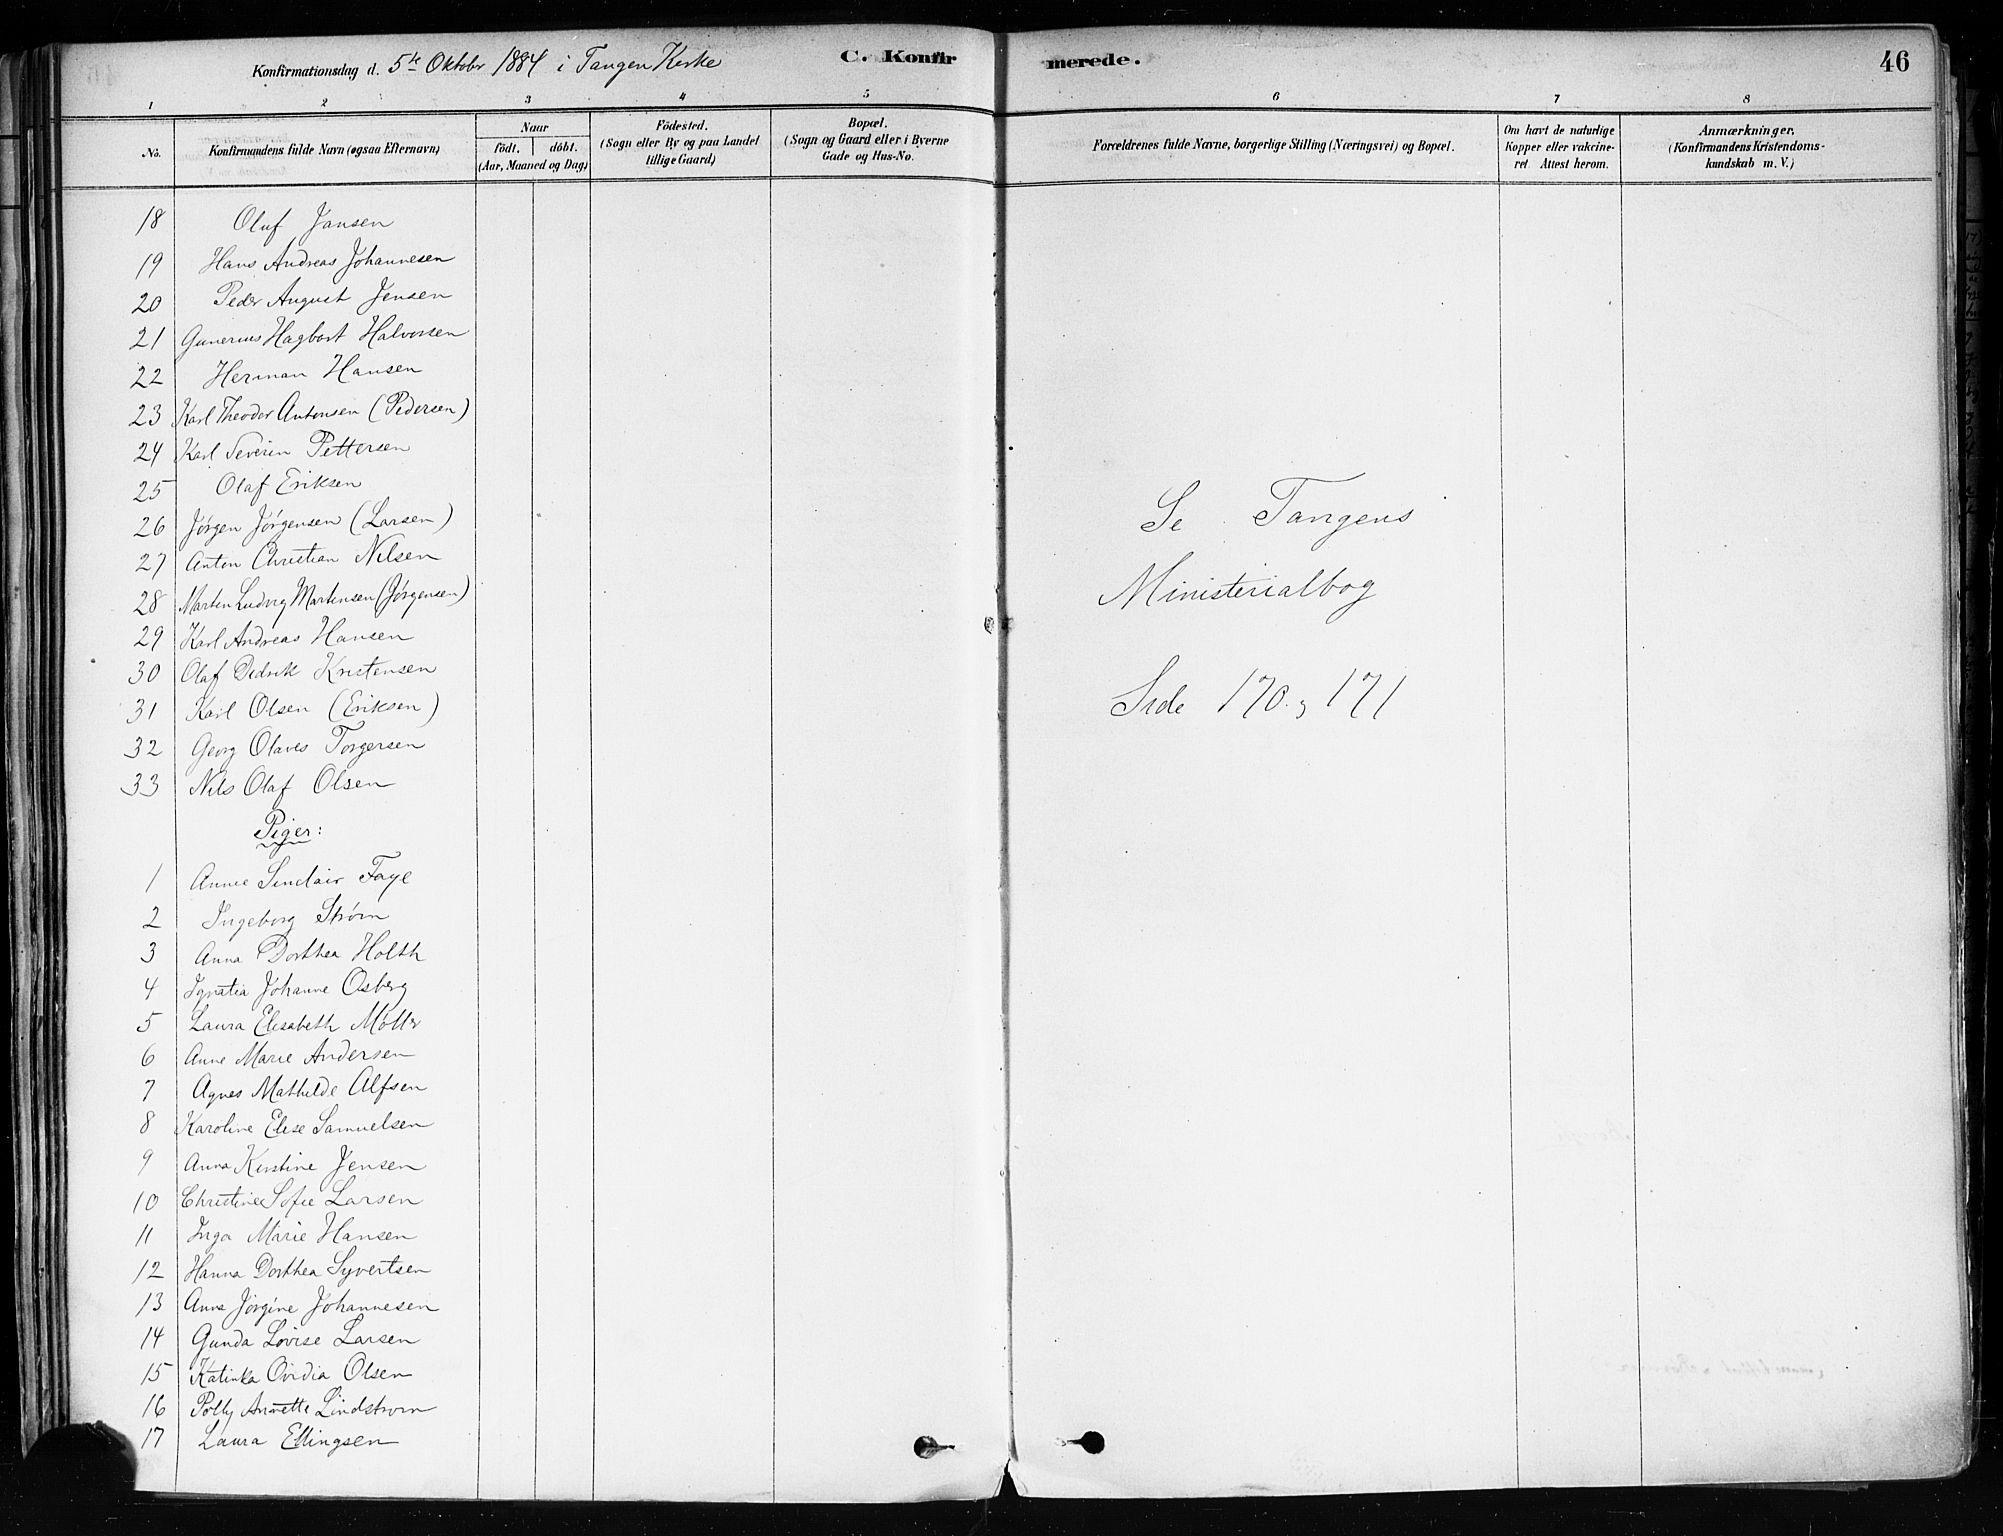 Konfirmationsdag d. 5te Oktober 1884 i Tangen Kirke C. Konfirmerede. 46
1 2 3 4 5 6 7 8
No.
Konfirmandens fulde Navn (ogsaa Efternavn)
Naar
født. døbt.
(Aar, Maaned og Dag)
Fødested.
(Sogn eller By og paa Landet
tillige Gaard)
Bopæl.
(Sogn og Gaard eller i Byerne
Gade og Hus-No.
Forældrenes fulde Navne, borgerlige Stilling (Næringsvei) og Bopæl.
Om havt de naturlige
Kopper eller vakcine-
ret Attest herom.
Anmærkninger.
(Konfirmandens Kristendoms-
kundskab m. V.)
18 Oluf Jansen
19 Hans Andreas Johannesen
20 Peder August Jensen
21 Gunerius Hagbart Halvorsen
22 Herman Hansen
23 Karl Theodor Antonsen (Pedersen)
24 Karl Severin Pettersen
25 Olaf Eriksen
26 Jørgen Jørgensen (Larsen)
27 Anton Christian Nilsen
28 Marten Ludvig Martensen (Jørgensen)
29 Karl Andreas Hansen
30 Olaf Didrik Kristensen
31 Karl Olsen (Eriksen)
32 Georg Olaves Torgersen
33 Nils Olaf Olsen
Piger:
1 Annie Sinclair Faye
2 Ingeborg Strøm
3 Anna Dorthea Holth
4 Ignatia Johanne Osberg
5 Laura Elisabeth Møller
6 Anne Marie Andersen
7 Agnes Mathilde Alfsen
8 Karoline Elise Samuelsen
9 Anna Kirstine Jensen
10 Christine Sofie Larsen
11 Inga Marie Hansen
12 Hanna Dorthea Syvertsen
13 Anna Jørgine Johannesen
14 Gunda Lovise Larsen
15 Katinka Ovidia Olsen
16 Polly Annette Lindstrøm
17 Laura Ellingsen
Se Tangens
Ministerialbog
Side 170 171